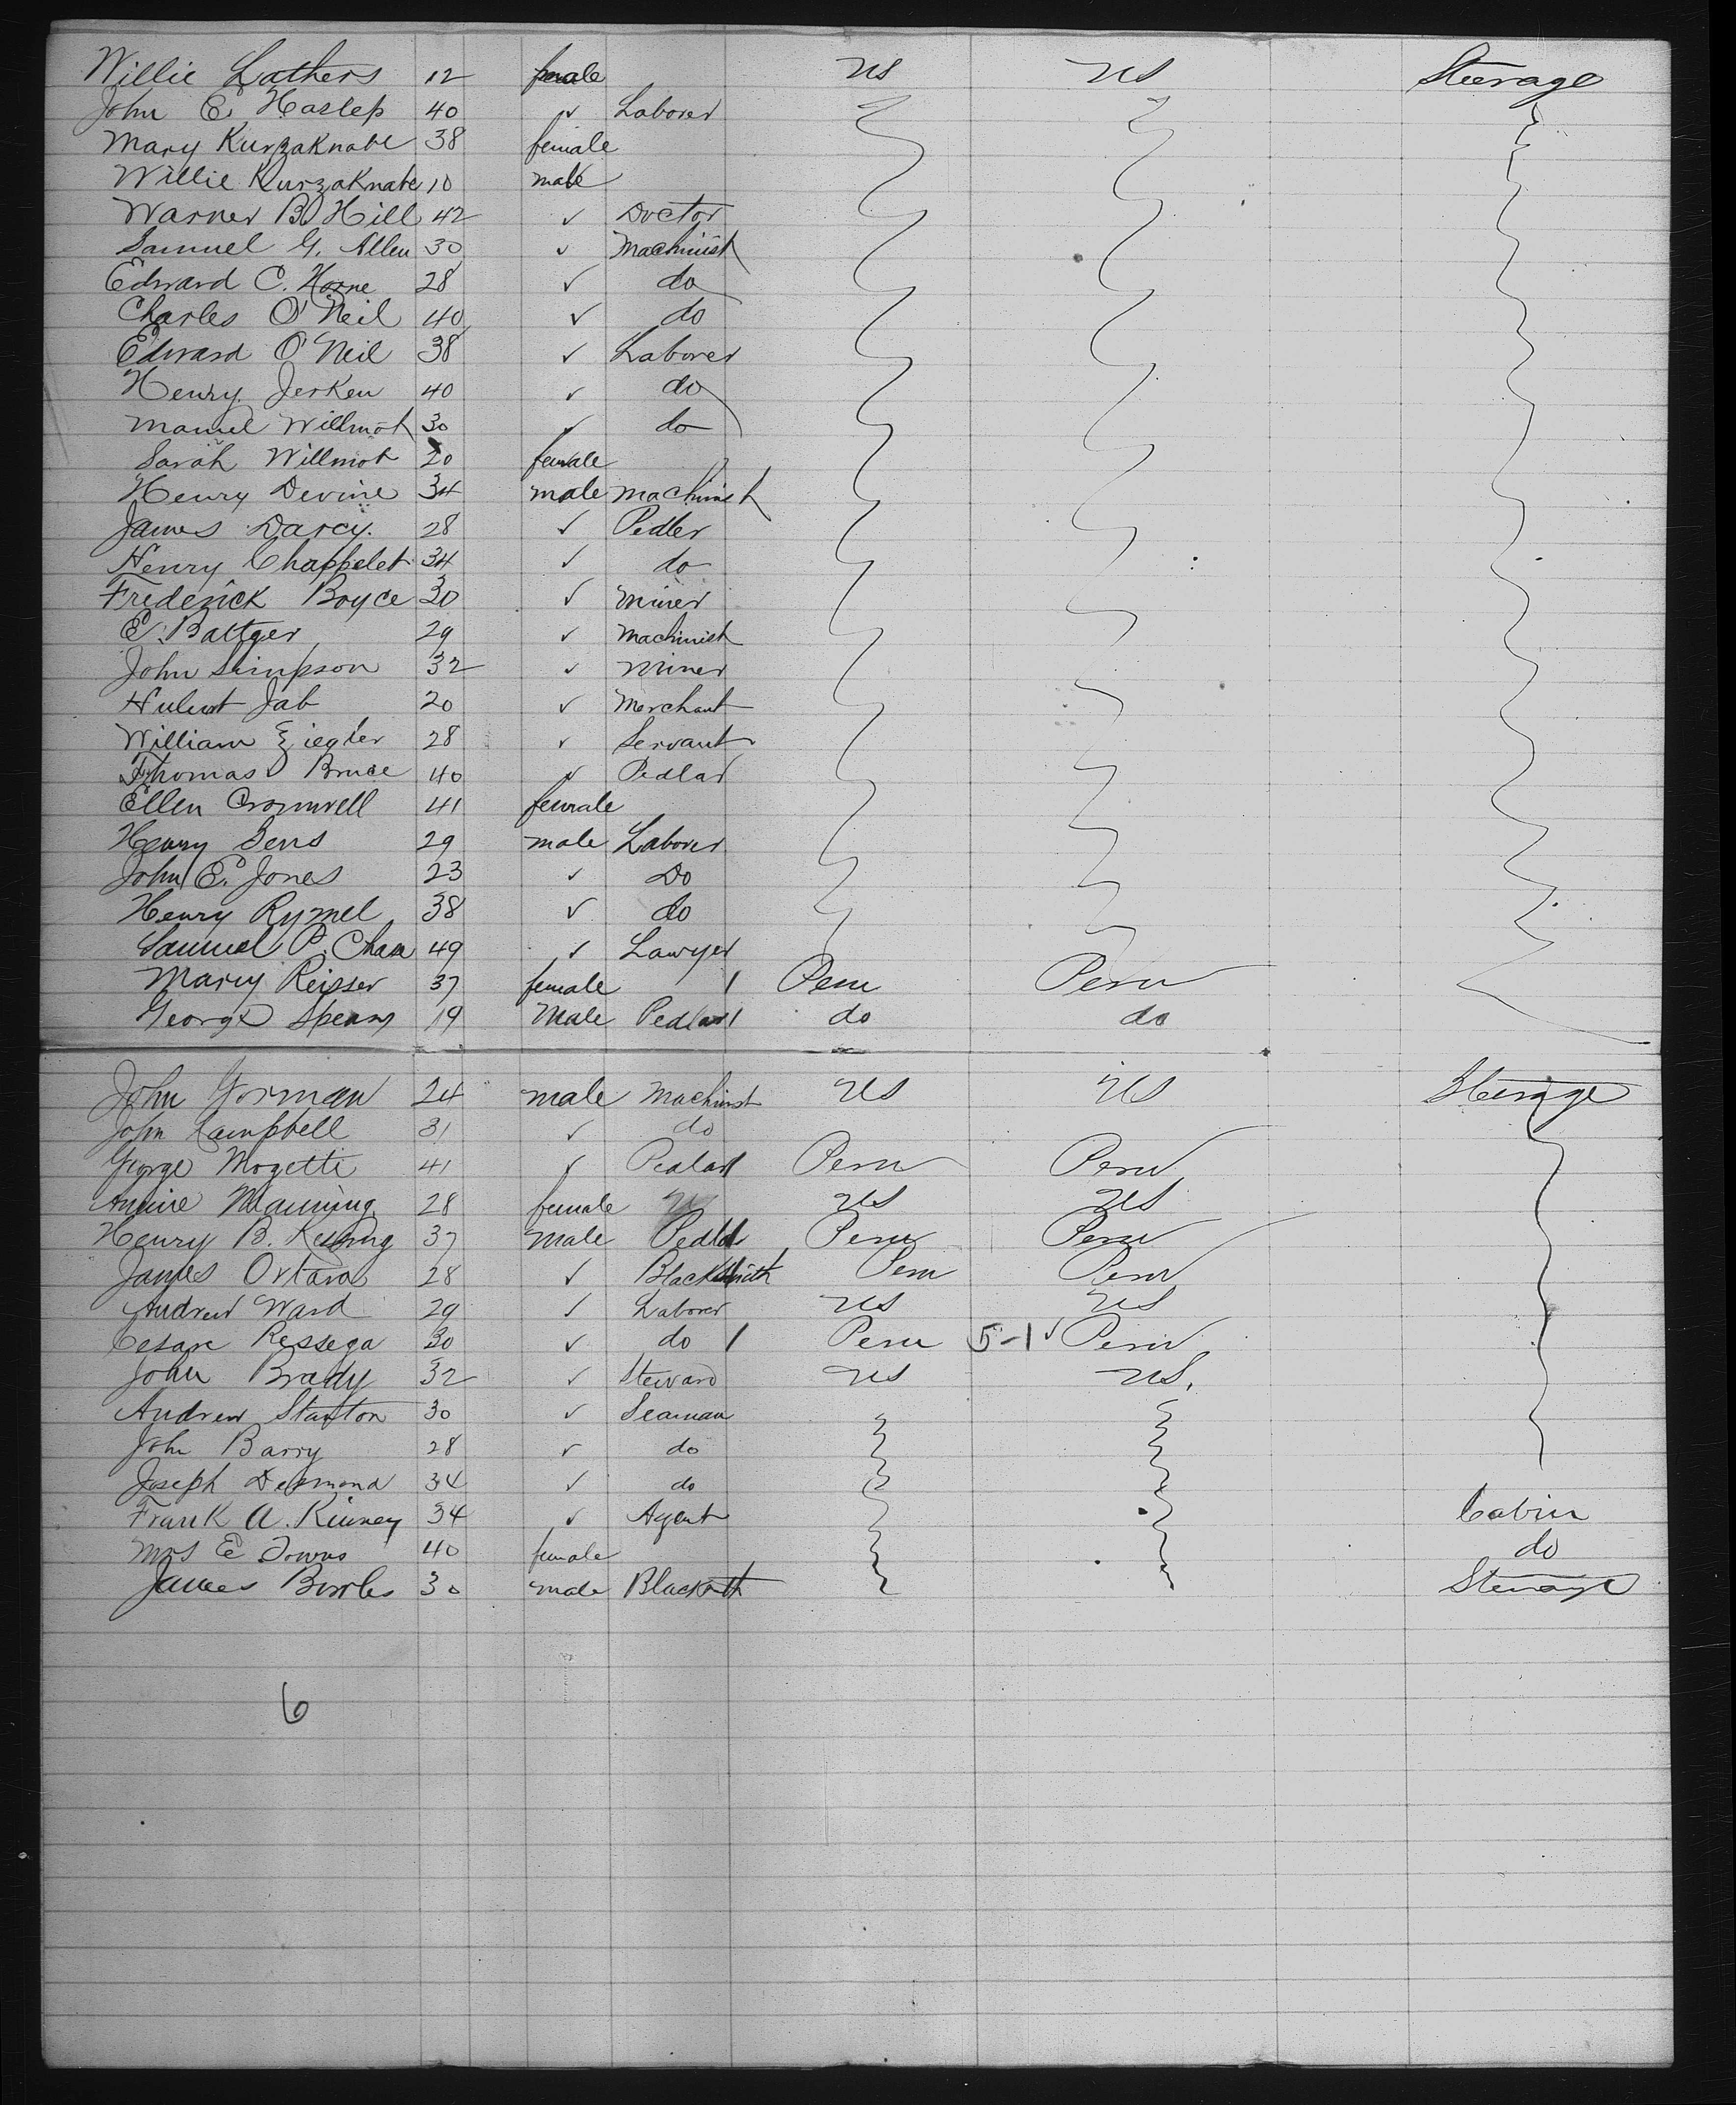 Willie Lathers 12 female US US Steerage
John E. Haslep 40 ✓ Laborer
Mary Kurzaknabe 38 female
Willie Kurzaknabe 10 male
Warner B. Hill 42 ✓ Doctor
Samuel G. Allen 30 ✓ Machinist
Edward C. Horne 28 ✓ do
Charles O'Neil 40 ✓ do
Edward O'Neil 38 ✓ Laborer
Henry Jerken 40 ✓ do
Manuel Willmot 30 ✓ do
Sarah Willmot 20 female
Henry Devine 34 male machinist
James Darcy. 28 ✓ Pedler
Henry Chappelet 34 ✓ do
Frederick Boyce 30 ✓ miner
E. Battger 29 ✓ machinist
John Simpson 32 ✓ miner
Jab 20 ✓ Merchant
William Ziegler 28 ✓ Servant
Thomas Bruce 40 ✓ Pedlar
Ellen Cromwell 41 female
Henry Sens 29 male Laborer
John E. Jones 23 ✓ Do
Henry Rymel 38 ✓ do
Samuel P. Chase 49 ✓ Lawyer
Mary Reisser 37 female 1 Peru Peru
George Spears 19 Male Pedlar 1 do do
John Gorman 24 male Machinst US US Steerage
John Campbell 31 ✓ do
George Mozetti 41 ✓ Pedlar 1 Peru Peru
Annie Manning 28 female US US
Henry B. 37 Male Pedlar Peru Peru
James 28 ✓ Blacksmith Peru Peru
Andrew Ward 29 ✓ Laborer US US
Cesare Ressega 30 ✓ do 1 Peru 5-1 ✓ Peru
John Brady 32 ✓ Steward US US.
Andrew Stanton 30 ✓ Seaman
John Barry 28 ✓ do
Joseph Desmond 34 ✓ do
Frank A. Kinney 34 ✓ Agent Cabin
Mrs E Towns 40 female do
James Bowles 30 male Blacksmith Steerage
6